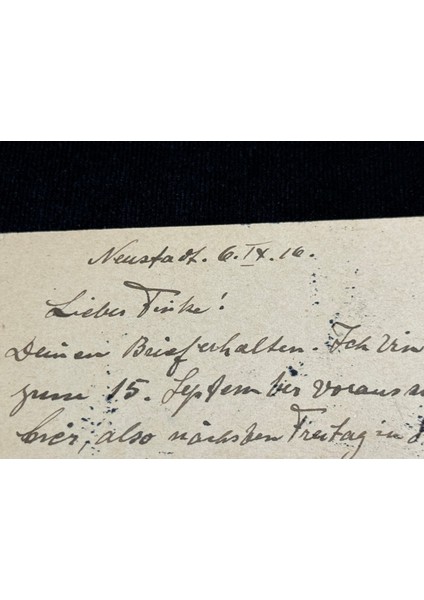 Neustadt. 6.IX.16.
Lieber Finke!
Deinen Brief erhalten. Ich bin
zum 15. September voraus
hier, also nächsten Freitag in